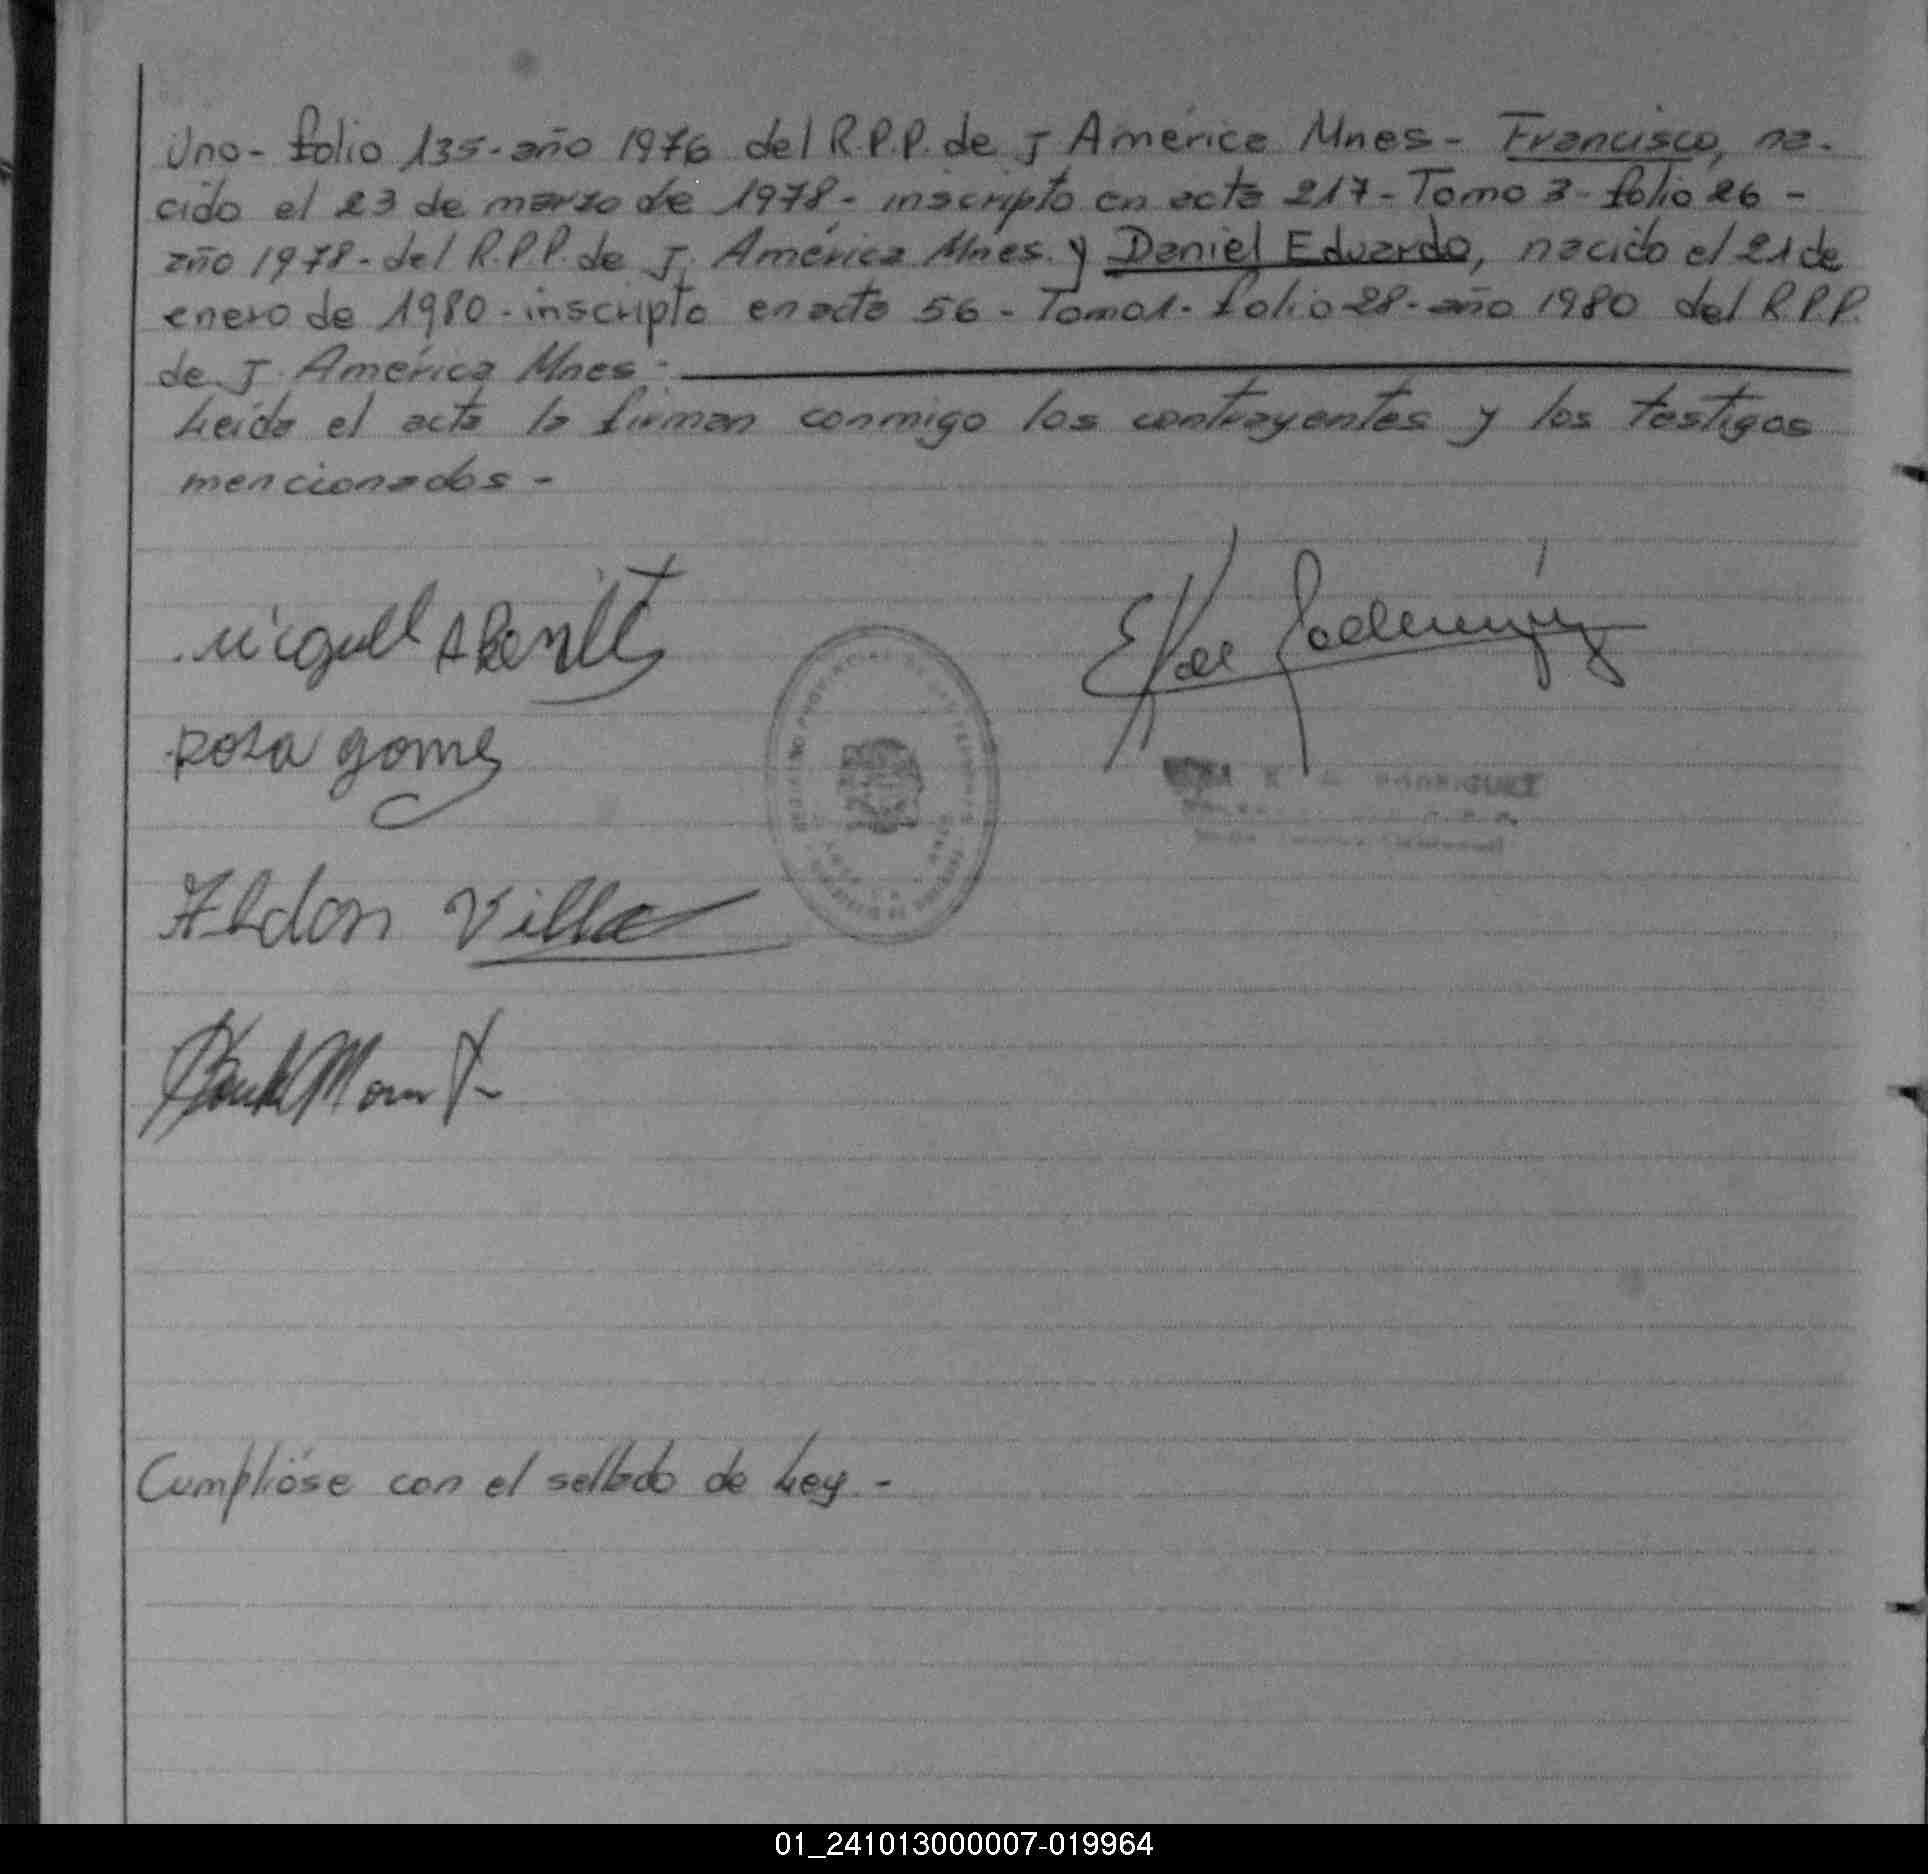 Uno - folio 135 - año 1976 del R.P.P. de J América Mnes - Francisco, na-
cido el 23 de marzo de 1978 - inscripto en acta 217 - Tomo 3 - folio 26 -
año 1978 - del R.P.P. de J. América Mnes. y Daniel Eduardo, nacido el 21 de
enero de 1980 - inscripto en acta 56 - Tomo 1 - folio 28 - año 1980 del R.P.P.
de J. América Mnes. -
Leída el acta la firman conmigo los contrayentes y los testigos
mencionados -
Miguel A Benitt
Rosa gomes
Villa
RODRIGUEZ
Cumplióse con el sellado de Ley. -
01_241013000007-019964